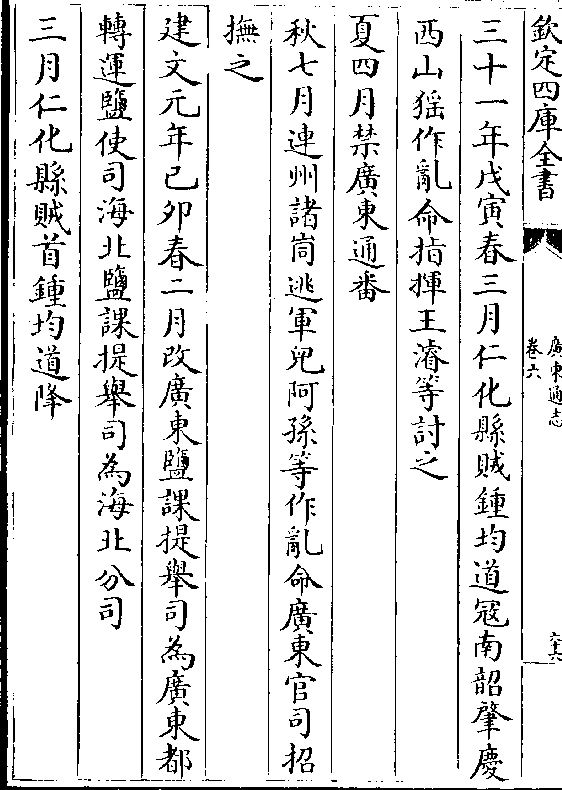 欽定四庫全書
廣東通志
卷六
六十六
三十一年戊寅春三月仁化縣賊鍾均道寇南韶肇慶
西山猺作亂命指揮王濬等討之
夏四月禁廣東通番
秋七月連州諸峝逃軍兒阿孫等作亂命廣東官司招
撫之
建文元年己卯春二月改廣東鹽課提舉司為廣東都
轉運鹽使司海北鹽課提舉司為海北分司
三月仁化縣賊首鍾均道降